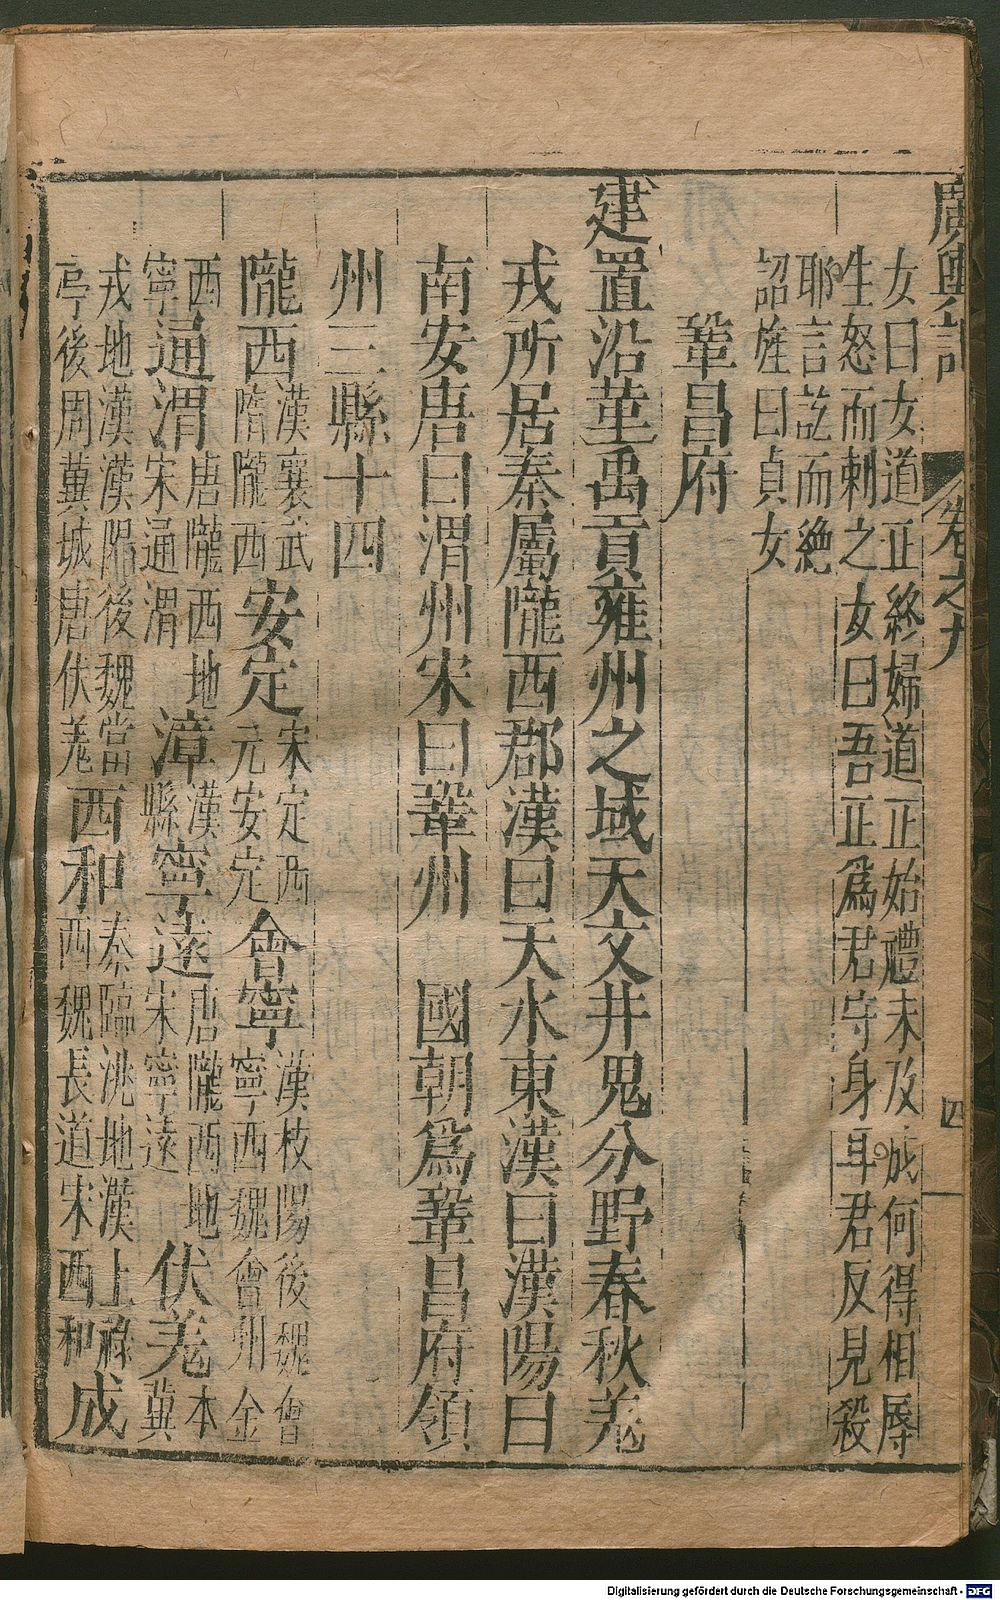 廣輿記 卷之九 四
女曰女道正終婦道正始禮未及成何得相辱
生怒而刺之女曰吾正爲君守身耳君反見殺
耶言訖而絶
詔旌曰貞女
鞏昌府
建置沿革禹貢雍州之域天文井鬼分野春秋羌
戎所居秦屬隴西郡漢曰天水東漢曰漢陽曰
南安唐曰渭州宋曰鞏州 國朝爲鞏昌府領
州三縣十四
隴西漢襄武隋隴西安定宋定西元安定會寧漢枝陽後魏會寧西魏會州金
西寧通渭唐隴西地宋通渭漳漢縣寧遠唐隴西地宋寧遠伏羌本冀
戎地漢漢陽後魏當亭後周冀城唐伏羌西和秦臨洮地漢上祿西魏長道宋西和成
Digitalisierung gefördert durch die Deutsche Forschungsgemeinschaft - DFG